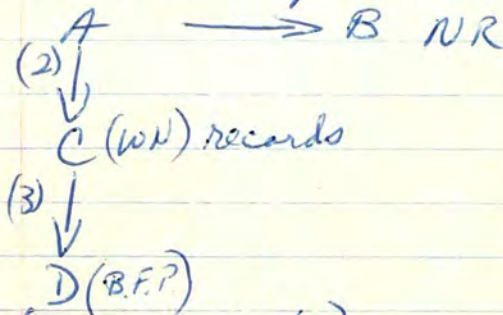 A → B NR
(2)
C (WN) records
(3)
D (B.F.P.)